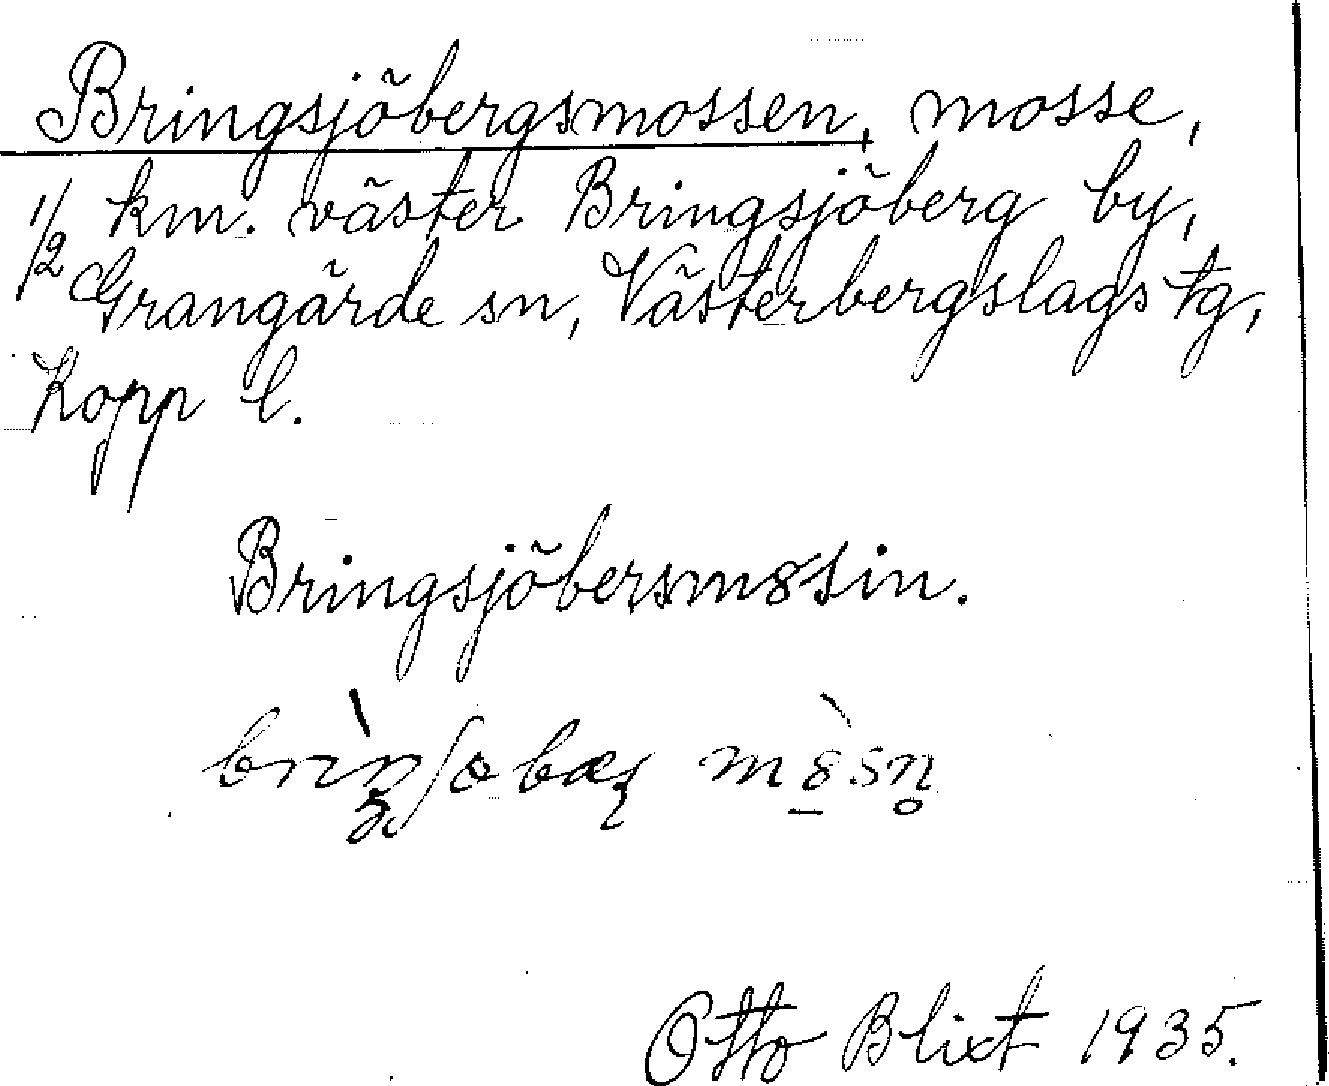 Bringsjöbergsmossen, mosse,
1/2 km. väster Bringsjöberg by,
Grangärde sn, Västerbergslags tg,
Kopp l.
Bringsjöbersm8sin.
Otto Blixt 1935.